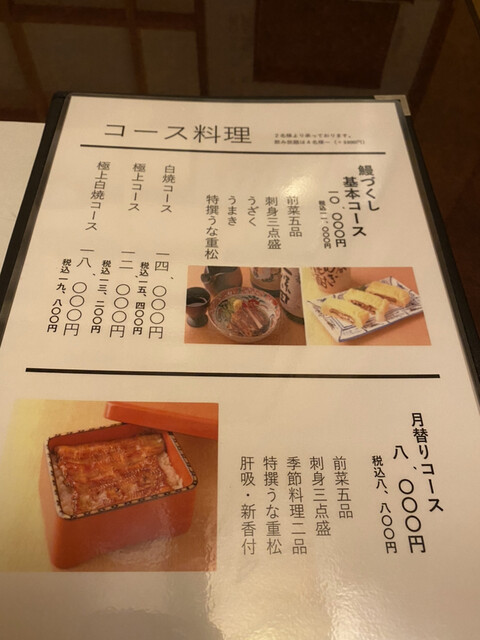 コース料理
2名様より承っております。
飲み放題は4名様〜(+3300円)
鰻づくし
基本コース
一〇、〇〇〇円
税込一一、〇〇〇円
前菜五品
刺身三点盛
うざく
うまき
特撰うな重松
白焼コース
一四、〇〇〇円
税込一五、四〇〇円
極上コース
一二、〇〇〇円
税込一三、二〇〇円
極上白焼コース
一八、〇〇〇円
税込一九、八〇〇円
月替りコース
八、〇〇〇円
税込八、八〇〇円
前菜五品
刺身三点盛
季節料理二品
特撰うな重松
肝吸・新香付